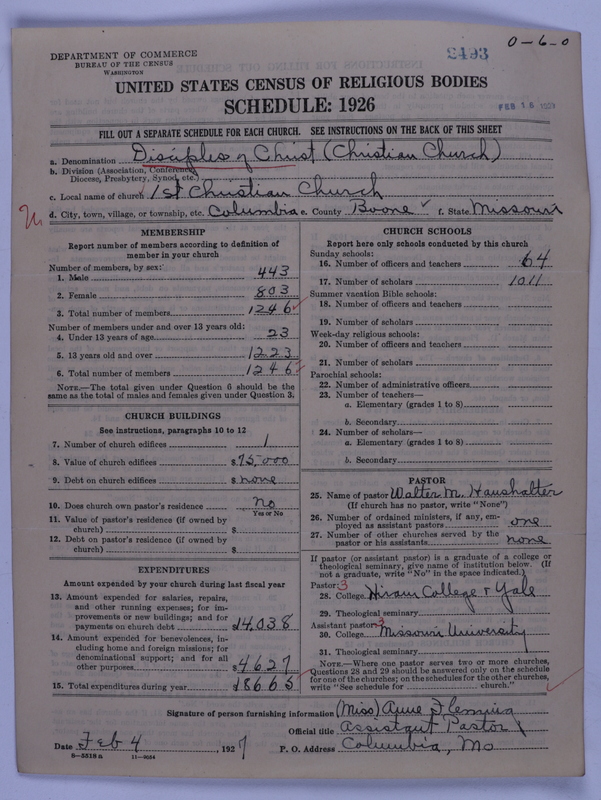 2493
0-6-0
DEPARTMENT OF COMMERCE
BUREAU OF THE CENSUS
WASHINGTON
UNITED STATES CENSUS OF RELIGIOUS BODIES
SCHEDULE: 1926
FEB 16 1927
FILL OUT A SEPARATE SCHEDULE FOR EACH CHURCH. SEE INSTRUCTIONS ON THE BACK OF THIS SHEET
a. Denomination Disciples of Christ (Christian Church)
b. Division (Association, Conference, Diocese, Presbytery, Synod, etc.)
c. Local name of church 1st Christian Church
d. City, town, village, or township, etc. Columbia e. County Boone ✓ f. State Missouri
MEMBERSHIP
Report number of members according to definition of
member in your church
Number of members, by sex:
1. Male 443
2. Female 803
3. Total number of members 1246 ✓
Number of members under and over 13 years old:
4. Under 13 years of age 23
5. 13 years old and over 1223
6. Total number of members 1246 ✓
NOTE.—The total given under Question 6 should be the
same as the total of males and females given under Question 3.
CHURCH BUILDINGS
See instructions, paragraphs 10 to 12
7. Number of church edifices 1
8. Value of church edifices $75,000
9. Debt on church edifices $ none
10. Does church own pastor's residence No
Yes or No
11. Value of pastor's residence (if owned by
church) $
12. Debt on pastor's residence (if owned by
church) $
EXPENDITURES
Amount expended by your church during last fiscal year
13. Amount expended for salaries, repairs,
and other running expenses; for im-
provements or new buildings; and for
payments on church debt $14,038
14. Amount expended for benevolences, in-
cluding home and foreign missions; for
denominational support; and for all
other purposes $4627
15. Total expenditures during year 18665
CHURCH SCHOOLS
Report here only schools conducted by this church
Sunday schools:
16. Number of officers and teachers 64
17. Number of scholars 1011
Summer vacation Bible schools:
18. Number of officers and teachers
19. Number of scholars
Week-day religious schools:
20. Number of officers and teachers
21. Number of scholars
Parochial schools:
22. Number of administrative officers
23. Number of teachers—
a. Elementary (grades 1 to 8)
b. Secondary
24. Number of scholars—
a. Elementary (grades 1 to 8)
b. Secondary
PASTOR
25. Name of pastor Walter M. Haushalter
(If church has no pastor, write "None")
26. Number of ordained ministers, if any, em-
ployed as assistant pastors one
27. Number of other churches served by the
pastor or his assistants none
If pastor (or assistant pastor) is a graduate of a college or
theological seminary, give name of institution below. (If
not a graduate, write "No" in the space indicated.)
Pastor: 3
28. College Hiram College + Yale
29. Theological seminary
Assistant pastor: 3
30. College Missouri University
31. Theological seminary
NOTE.—Where one pastor serves two or more churches,
Questions 28 and 29 should be answered only on the schedule
for one of the churches; on the schedules for the other churches,
write "See schedule for church."
Signature of person furnishing information (Miss) Anne Fleming
Official title Assistant Pastor
Date Feb 4 1927 P. O. Address Columbia, Mo
8-5518 a 11-9054